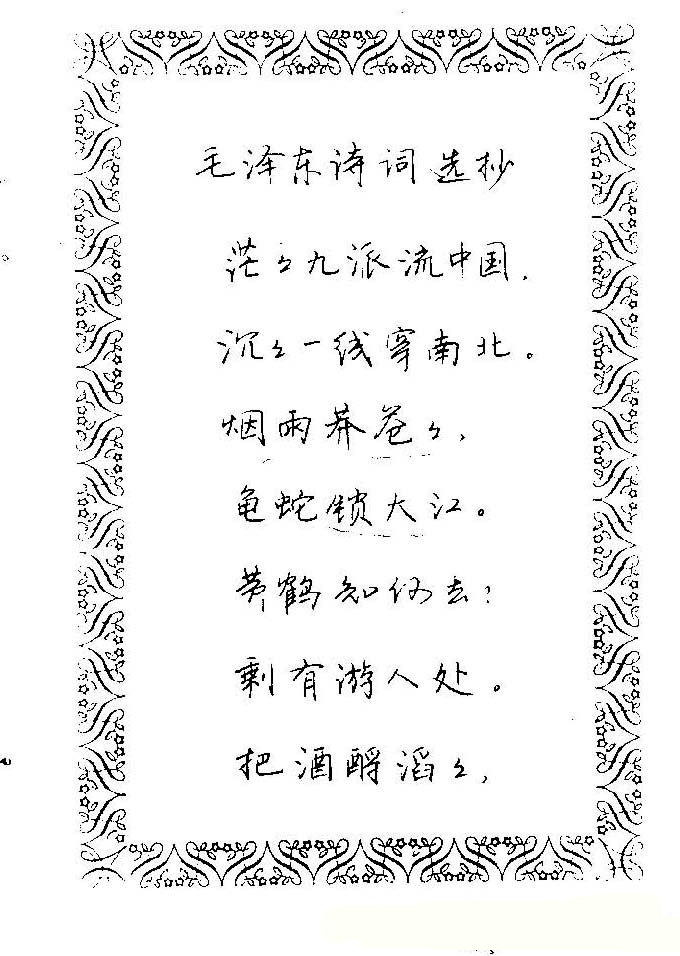 毛泽东诗词选抄
茫々九派流中国，
沉々一线穿南北。
烟雨莽苍々，
龟蛇锁大江。
黄鹤知何去？
剩有游人处。
把酒酹滔々，